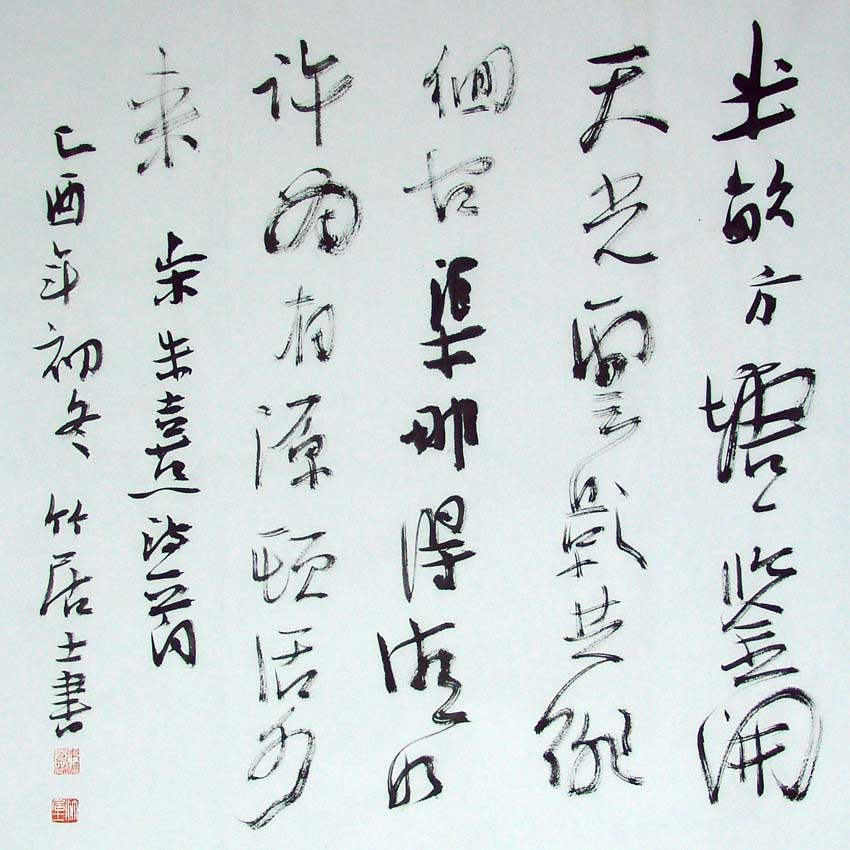 半畝方塘一鑒開
天光雲影共徘
徊問渠那得清如
許為有源頭活水
来 宋朱熹詩一首
乙酉年初冬 竹居士書